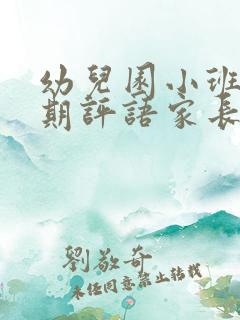 幼兒園小班
期評語家長
劉敬奇
未經同意禁止轉載